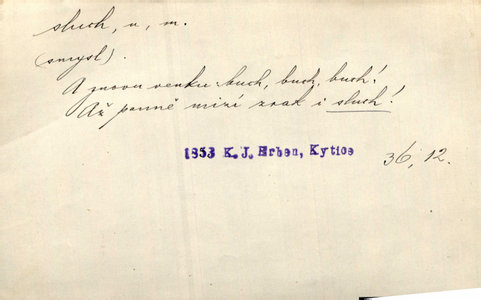 sluch, u, m.
(smysl).
A znovu venku: buch, buch, buch!
Až panně mizí zrak i sluch!
1853 K. J. Erben, Kytice 36, 12.